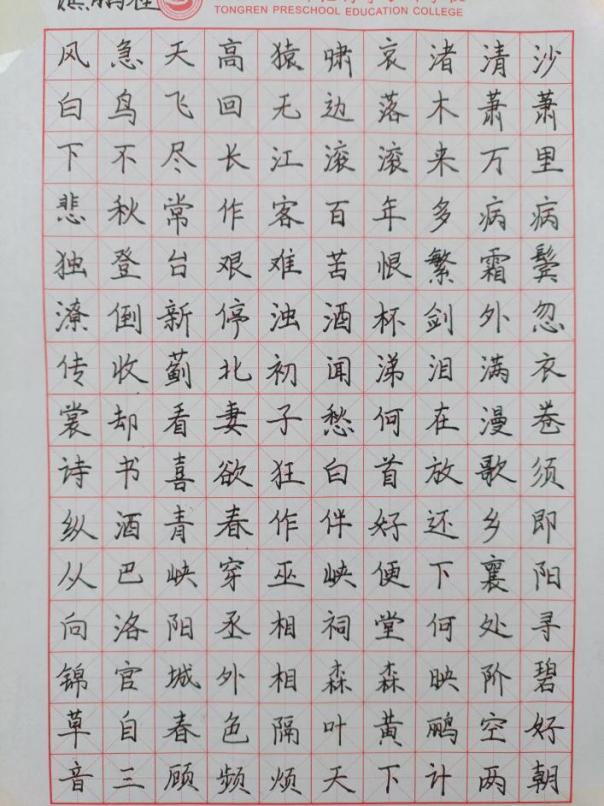 TONGREN PRESCHOOL EDUCATION COLLEGE
风急天高猿啸哀渚清沙
白鸟飞回无边落木萧萧
下不尽长江滚滚来万里
悲秋常作客百年多病病
独登台艰难苦恨繁霜鬓
潦倒新停浊酒杯剑外忽
传收蓟北初闻涕泪满衣
裳却看妻子愁何在漫卷
诗书喜欲狂白首放歌须
纵酒青春作伴好还乡即
从巴峡穿巫峡便下襄阳
向洛阳丞相祠堂何处寻
锦官城外相森森映阶碧
草自春色隔叶黄鹂空好
音三顾频烦天下计两朝